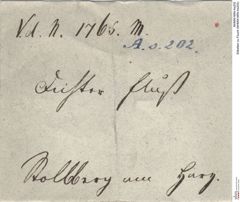 V. d. N. 1765. M.
A. s. 202.
Dichter Fluß
Stollberg am Harz.